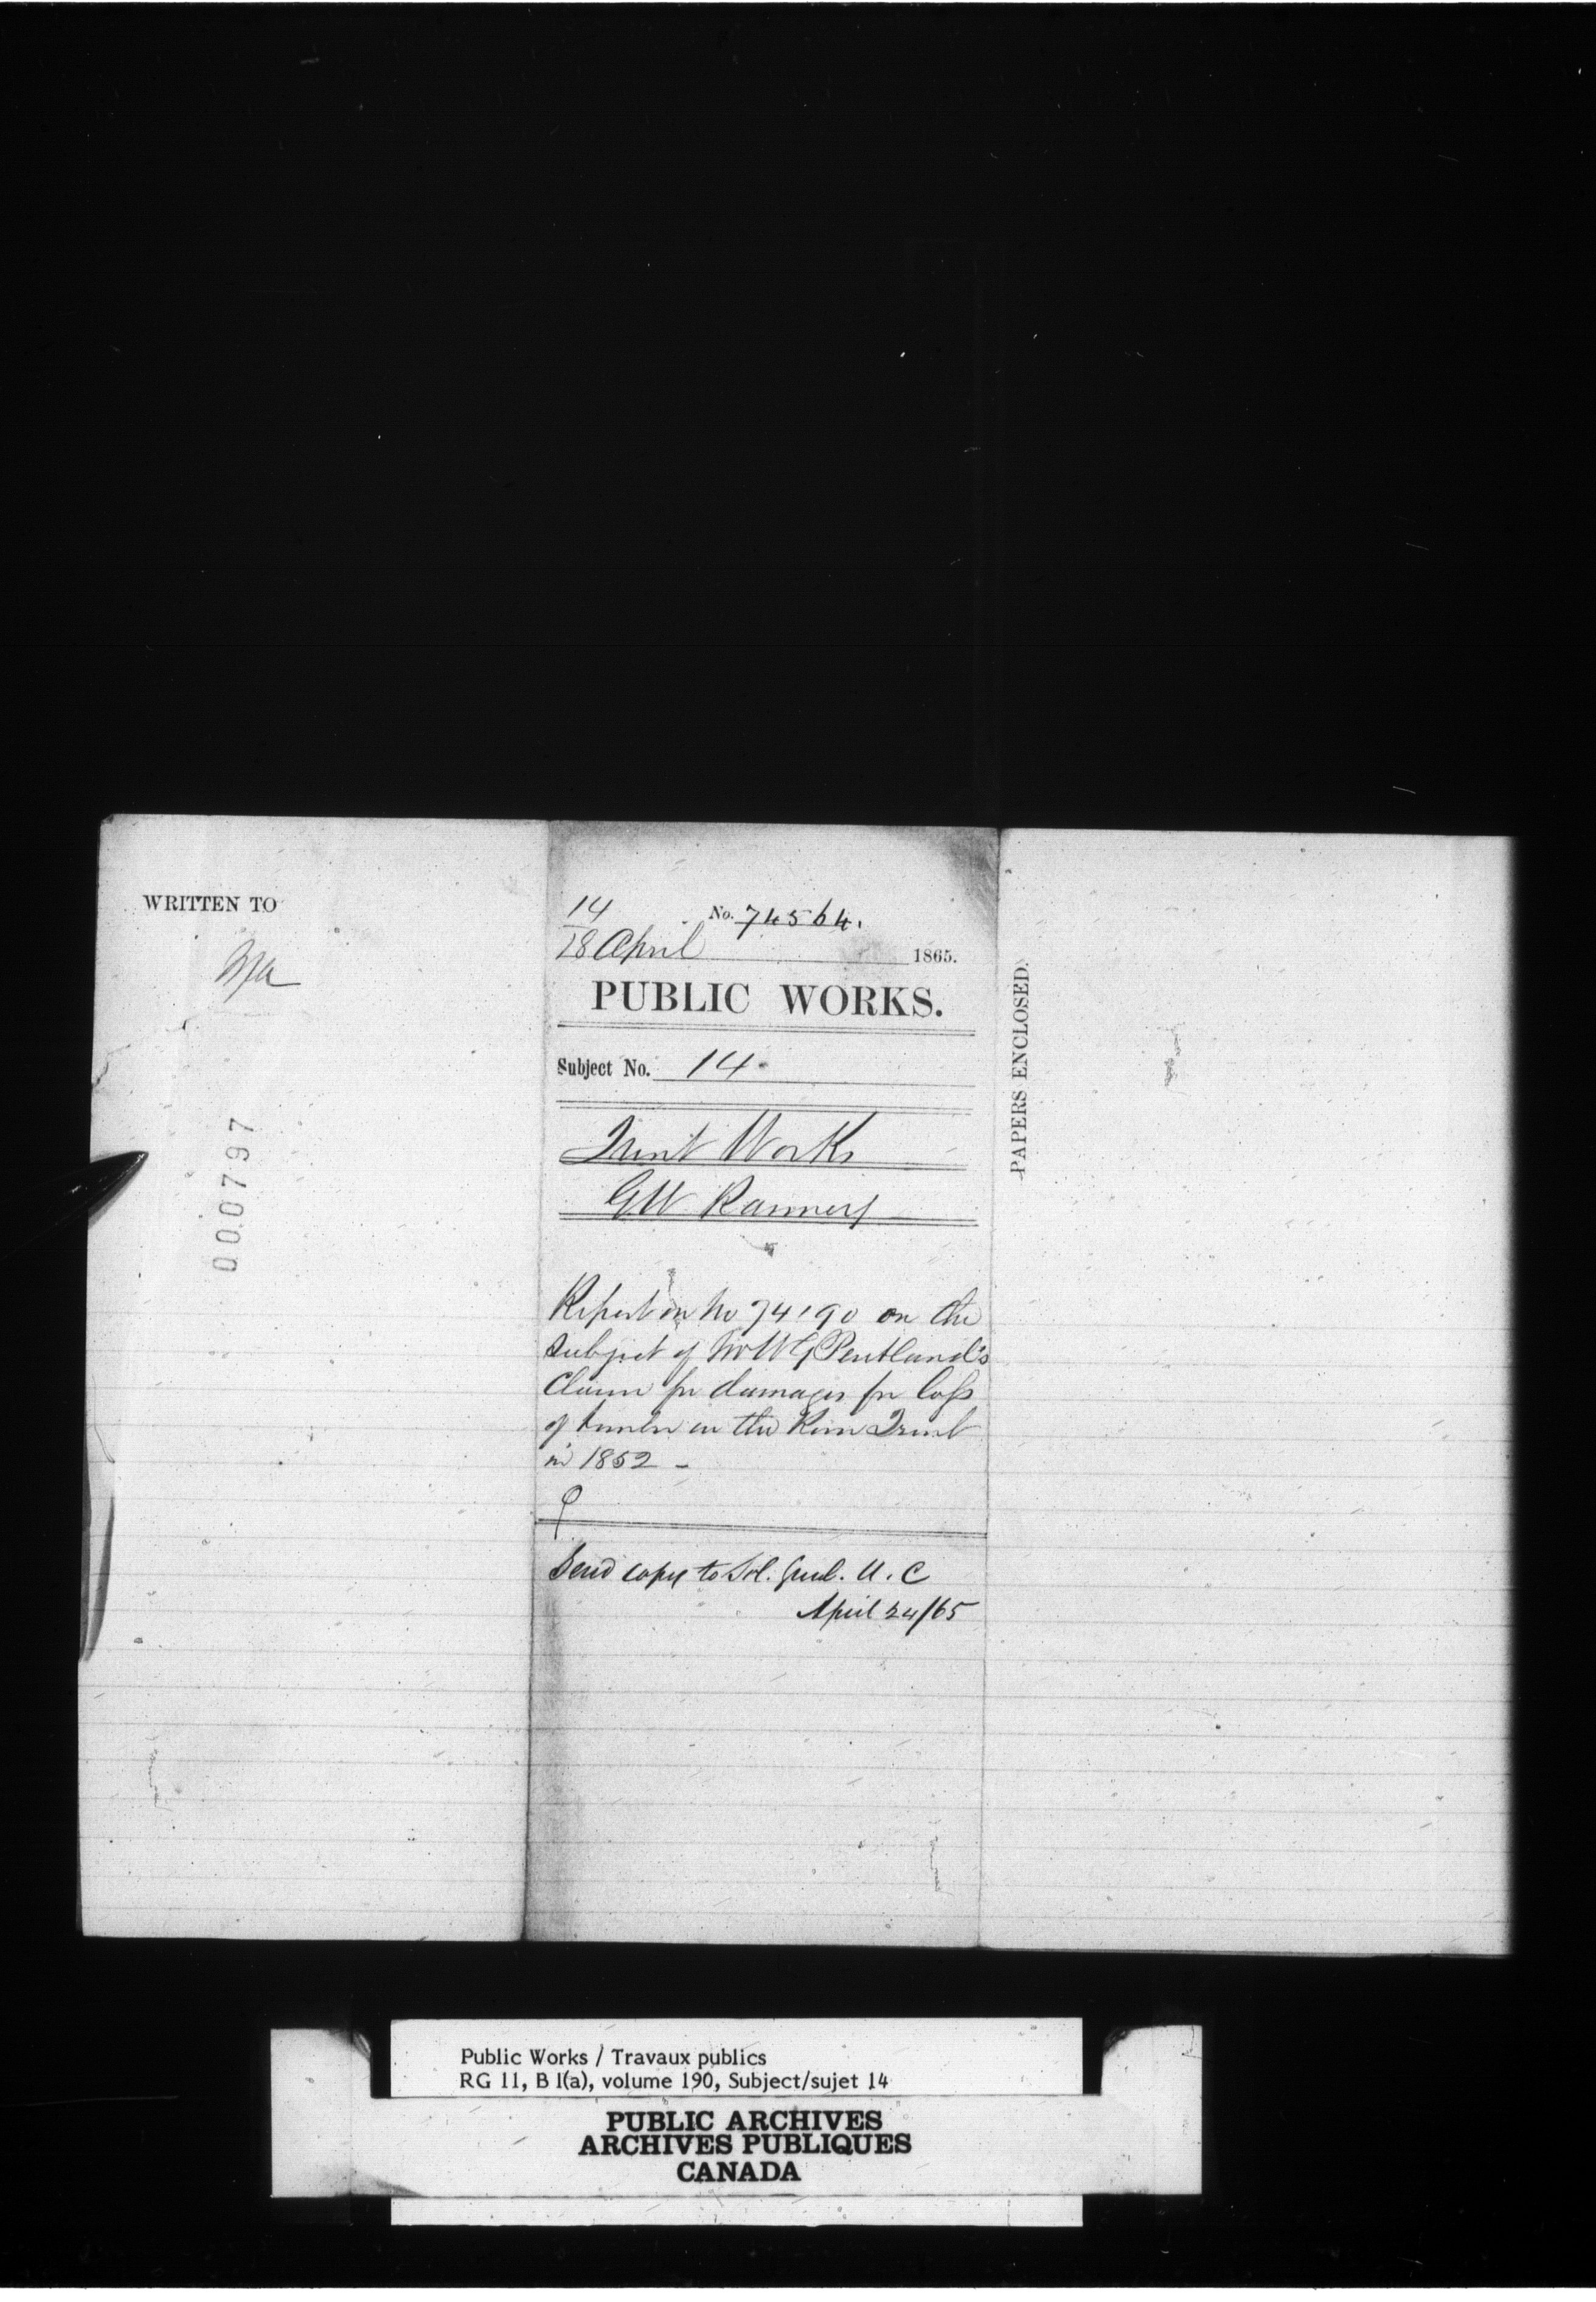 WRITTEN TO
000797
14
18 April
No. 74564.
1865.
PUBLIC WORKS.
Subject No. 14.
Trent Works
GW Ranney
Report on No 74190 on the
subject of Mr W G Pentland's
Claim for damages for loss
of timber in the River Trent
in 1852 -
Send copy to Sol. Genl. U. C
April 24/65
PAPERS ENCLOSED.
Public Works / Travaux publics
RG 11, B 1(a), volume 190, Subject/sujet 14
PUBLIC ARCHIVES
ARCHIVES PUBLIQUES
CANADA